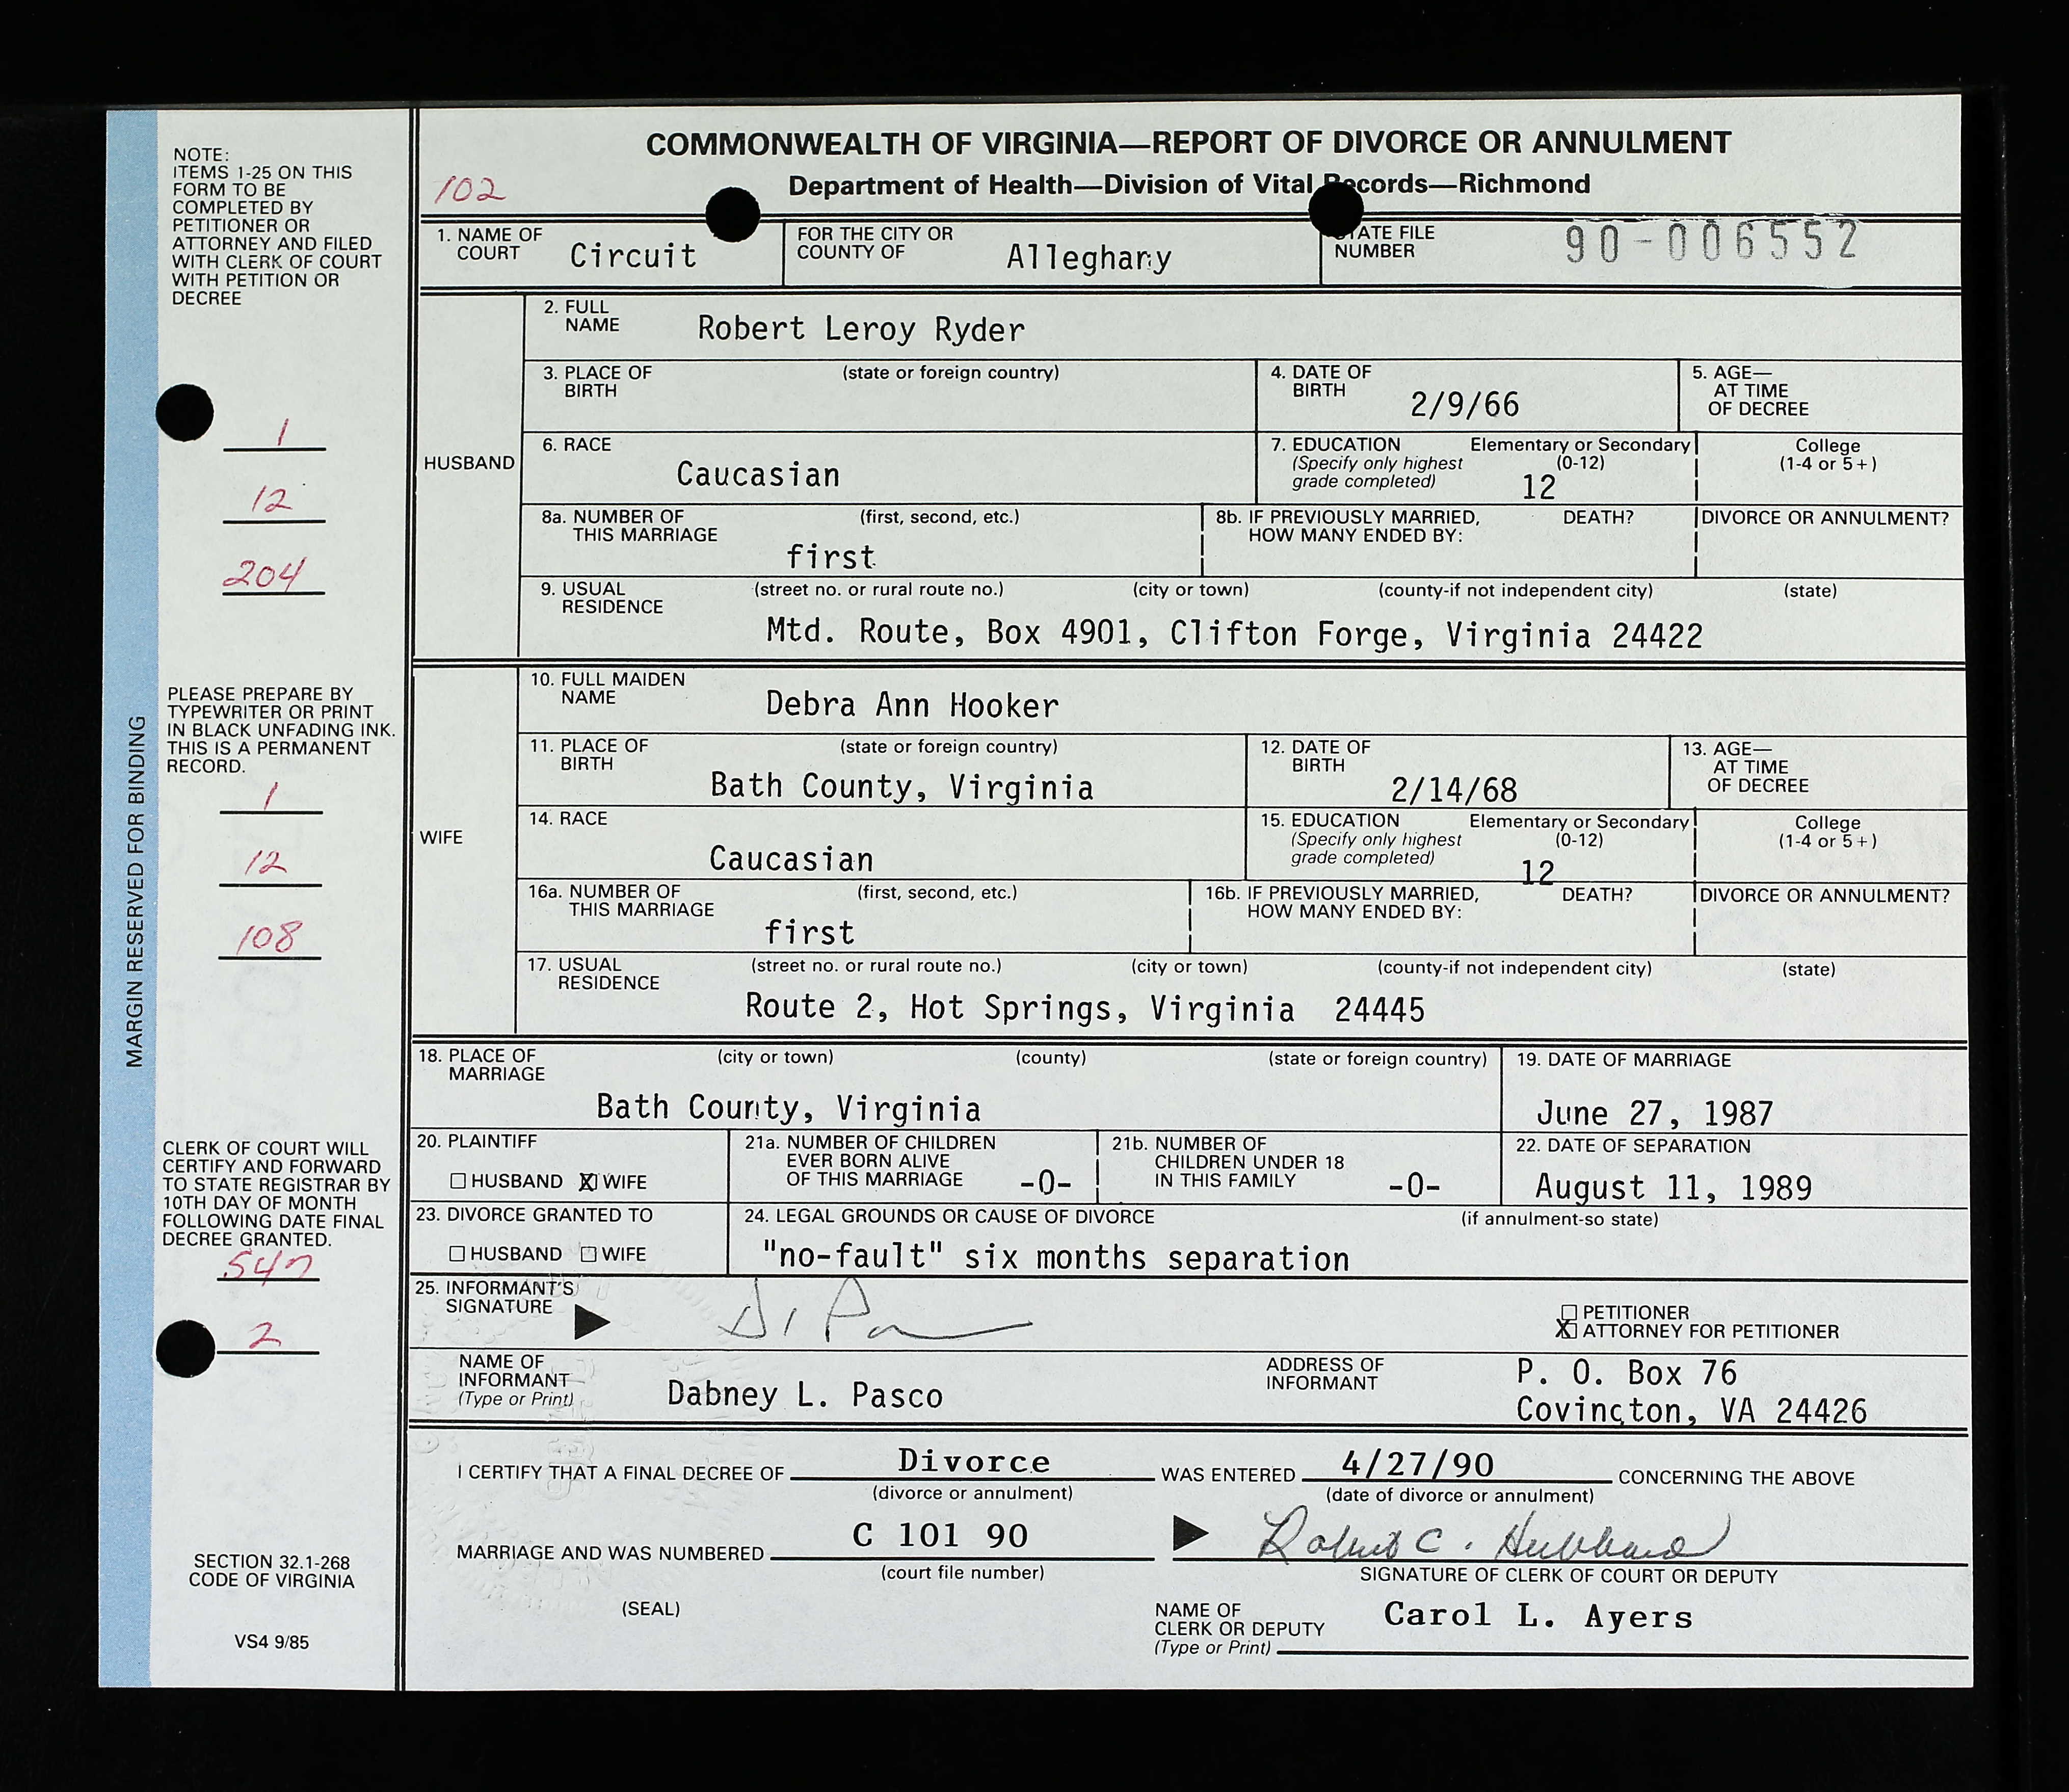 COMMONWEALTH OF VIRGINIA—REPORT OF DIVORCE OR ANNULMENT
Department of Health—Division of Vital Records—Richmond
102
NOTE:
ITEMS 1-25 ON THIS
FORM TO BE
COMPLETED BY
PETITIONER OR
ATTORNEY AND FILED
WITH CLERK OF COURT
WITH PETITION OR
DECREE
1
12
204
PLEASE PREPARE BY
TYPEWRITER OR PRINT
IN BLACK UNFADING INK.
THIS IS A PERMANENT
RECORD.
1
12
108
CLERK OF COURT WILL
CERTIFY AND FORWARD
TO STATE REGISTRAR BY
10TH DAY OF MONTH
FOLLOWING DATE FINAL
DECREE GRANTED.
547
2
SECTION 32.1-268
CODE OF VIRGINIA
VS4 9/85
MARGIN RESERVED FOR BINDING
1. NAME OF COURT Circuit
FOR THE CITY OR COUNTY OF Alleghany
STATE FILE NUMBER 90-006552
HUSBAND
2. FULL NAME Robert Leroy Ryder
3. PLACE OF BIRTH (state or foreign country)
4. DATE OF BIRTH 2/9/66
5. AGE— AT TIME OF DECREE
6. RACE Caucasian
7. EDUCATION (Specify only highest grade completed) Elementary or Secondary (0-12) 12
College (1-4 or 5+)
8a. NUMBER OF THIS MARRIAGE (first, second, etc.) first
8b. IF PREVIOUSLY MARRIED, HOW MANY ENDED BY: DEATH? DIVORCE OR ANNULMENT?
9. USUAL RESIDENCE (street no. or rural route no.) (city or town) (county-if not independent city) (state)
Mtd. Route, Box 4901, Clifton Forge, Virginia 24422
WIFE
10. FULL MAIDEN NAME Debra Ann Hooker
11. PLACE OF BIRTH (state or foreign country) Bath County, Virginia
12. DATE OF BIRTH 2/14/68
13. AGE— AT TIME OF DECREE
14. RACE Caucasian
15. EDUCATION (Specify only highest grade completed) Elementary or Secondary (0-12) 12
College (1-4 or 5+)
16a. NUMBER OF THIS MARRIAGE (first, second, etc.) first
16b. IF PREVIOUSLY MARRIED, HOW MANY ENDED BY: DEATH? DIVORCE OR ANNULMENT?
17. USUAL RESIDENCE (street no. or rural route no.) (city or town) (county-if not independent city) (state)
Route 2, Hot Springs, Virginia 24445
18. PLACE OF MARRIAGE (city or town) (county) (state or foreign country)
Bath County, Virginia
19. DATE OF MARRIAGE June 27, 1987
20. PLAINTIFF HUSBAND X WIFE
21a. NUMBER OF CHILDREN EVER BORN ALIVE OF THIS MARRIAGE -0-
21b. NUMBER OF CHILDREN UNDER 18 IN THIS FAMILY -0-
22. DATE OF SEPARATION August 11, 1989
23. DIVORCE GRANTED TO HUSBAND WIFE
24. LEGAL GROUNDS OR CAUSE OF DIVORCE (if annulment-so state)
"no-fault" six months separation
25. INFORMANT'S SIGNATURE
PETITIONER
X ATTORNEY FOR PETITIONER
NAME OF INFORMANT (Type or Print) Dabney L. Pasco
ADDRESS OF INFORMANT P. O. Box 76
Covington, VA 24426
I CERTIFY THAT A FINAL DECREE OF Divorce WAS ENTERED 4/27/90 CONCERNING THE ABOVE
(divorce or annulment) (date of divorce or annulment)
MARRIAGE AND WAS NUMBERED C 101 90 Robert C. Hubbard
(court file number) SIGNATURE OF CLERK OF COURT OR DEPUTY
(SEAL)
NAME OF CLERK OR DEPUTY (Type or Print) Carol L. Ayers